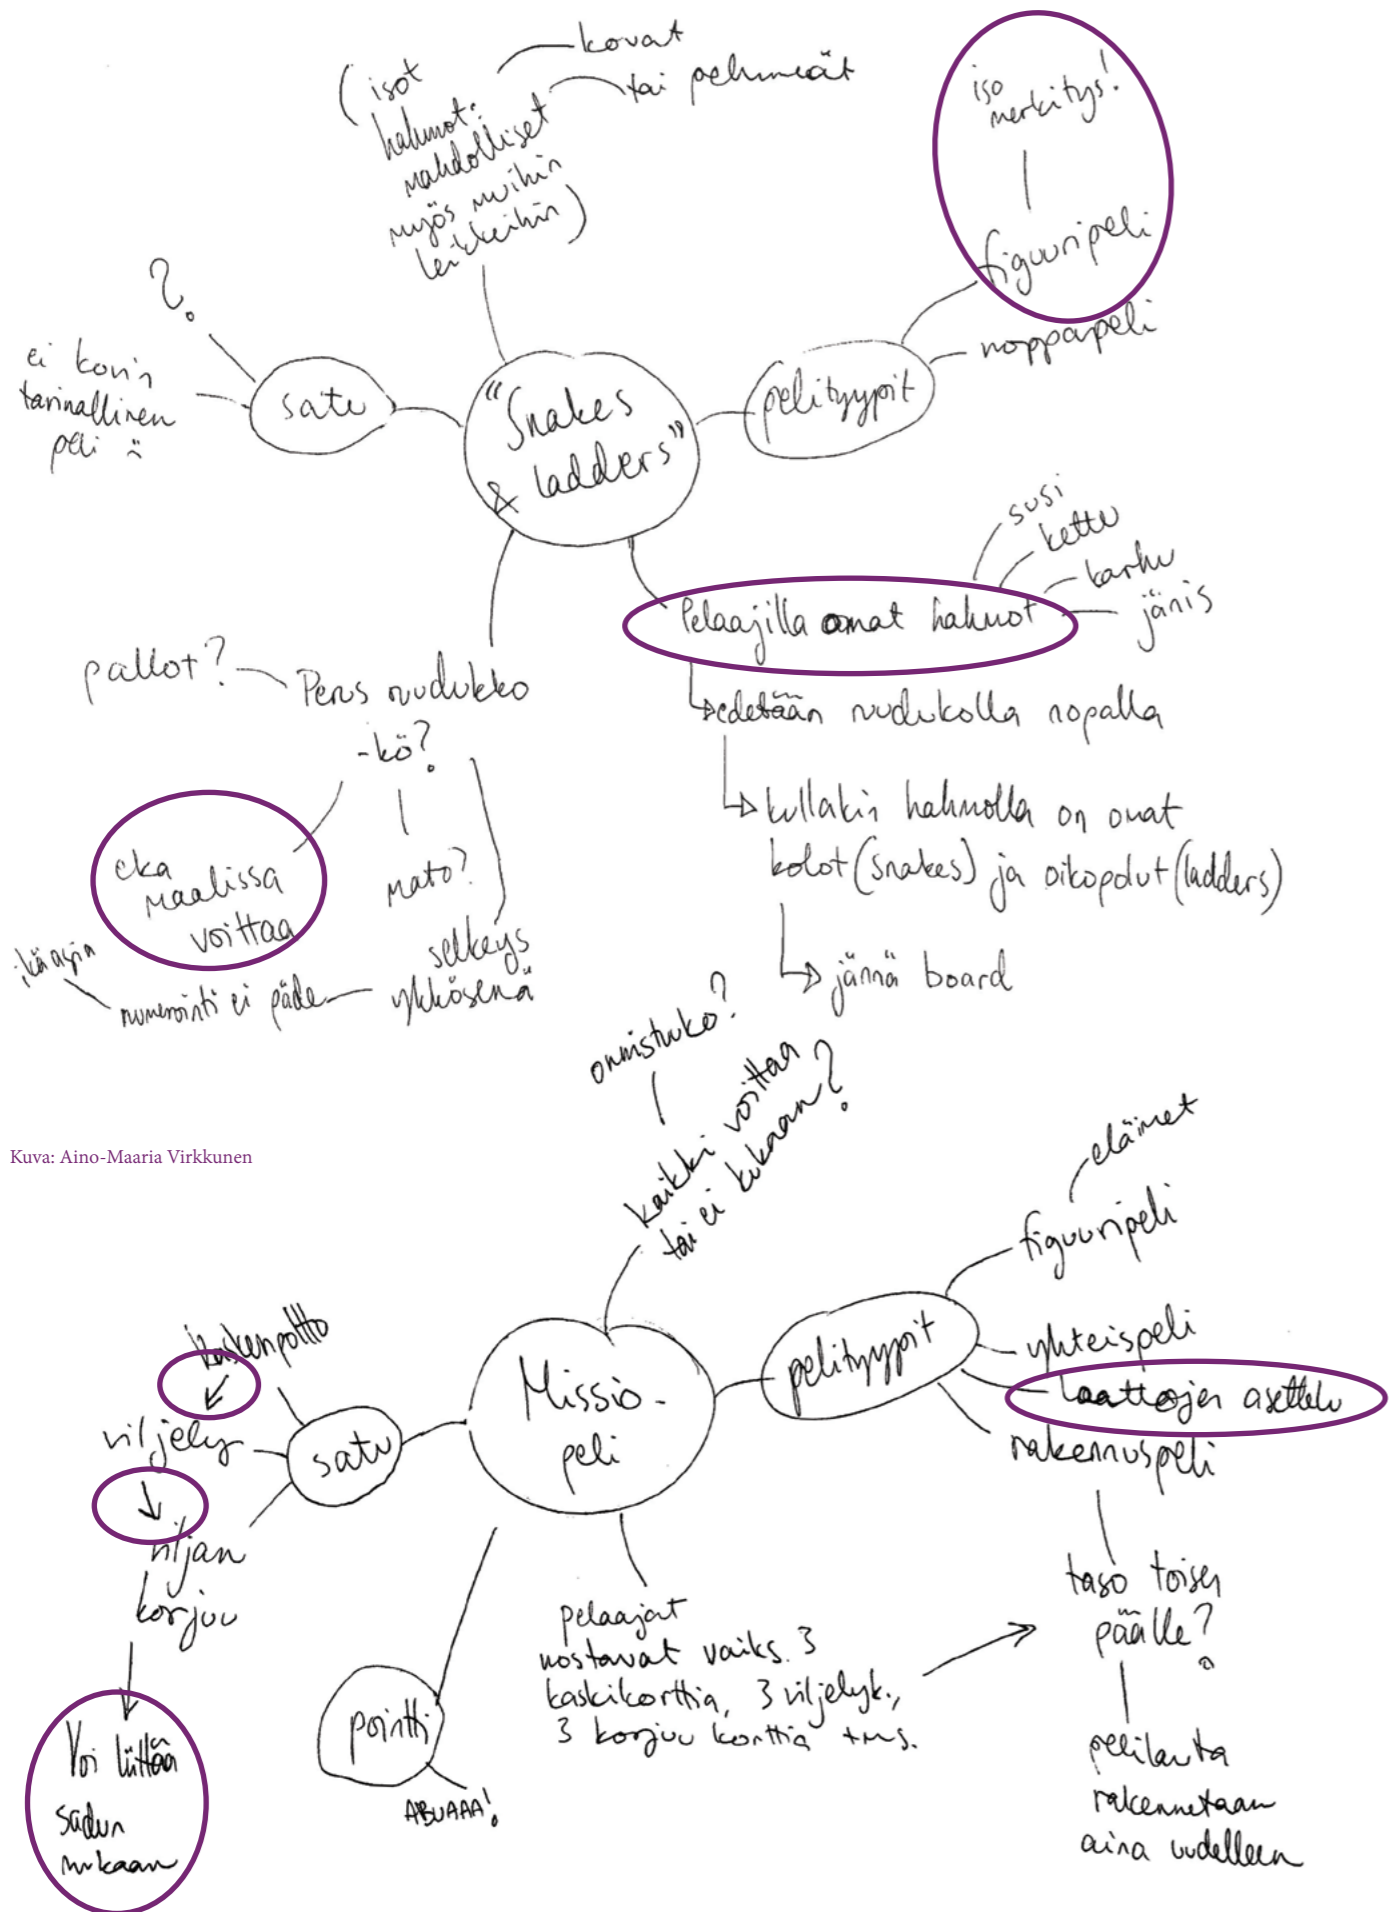 kovat
tai pehmeät
(isot
hahmot:
mahdolliset
myös muihin
leikkeihin)
iso
merkitys!
figuuripeli
noppapeli
pelityypit
?
ei kovin
tarinallinen
peli :(
satu
"Snakes
& ladders"
susi
kettu
karhu
jänis
Pelaajilla omat hahmot
edetään ruudukolla nopalla
kullakin hahmolla on omat
kolot (snakes) ja oikopolut (ladders)
jännä board
pallot?
Perus ruudukko
-kö?
eka
maalissa
voittaa
mato?
selkeys
ykkösenä
numerointi ei päde
ikä
onnistuuko?
kaikki voittaa
tai ei kukaan?
Kuva: Aino-Maaria Virkkunen
eläimet
figuuripeli
yhteispeli
laattojen asettelu
rakennuspeli
pelityypit
Missio-
peli
kaskenpoltto
viljely
viljan
korjuu
satu
Voi liittää
sadun
mukaan
pointti
ABUAAA!
pelaajat
nostavat vaiks. 3
kaskikorttia, 3 viljelyk.,
3 korjuu korttia tms.
taso toisen
päälle?
pelilauta
rakennetaan
aina uudelleen